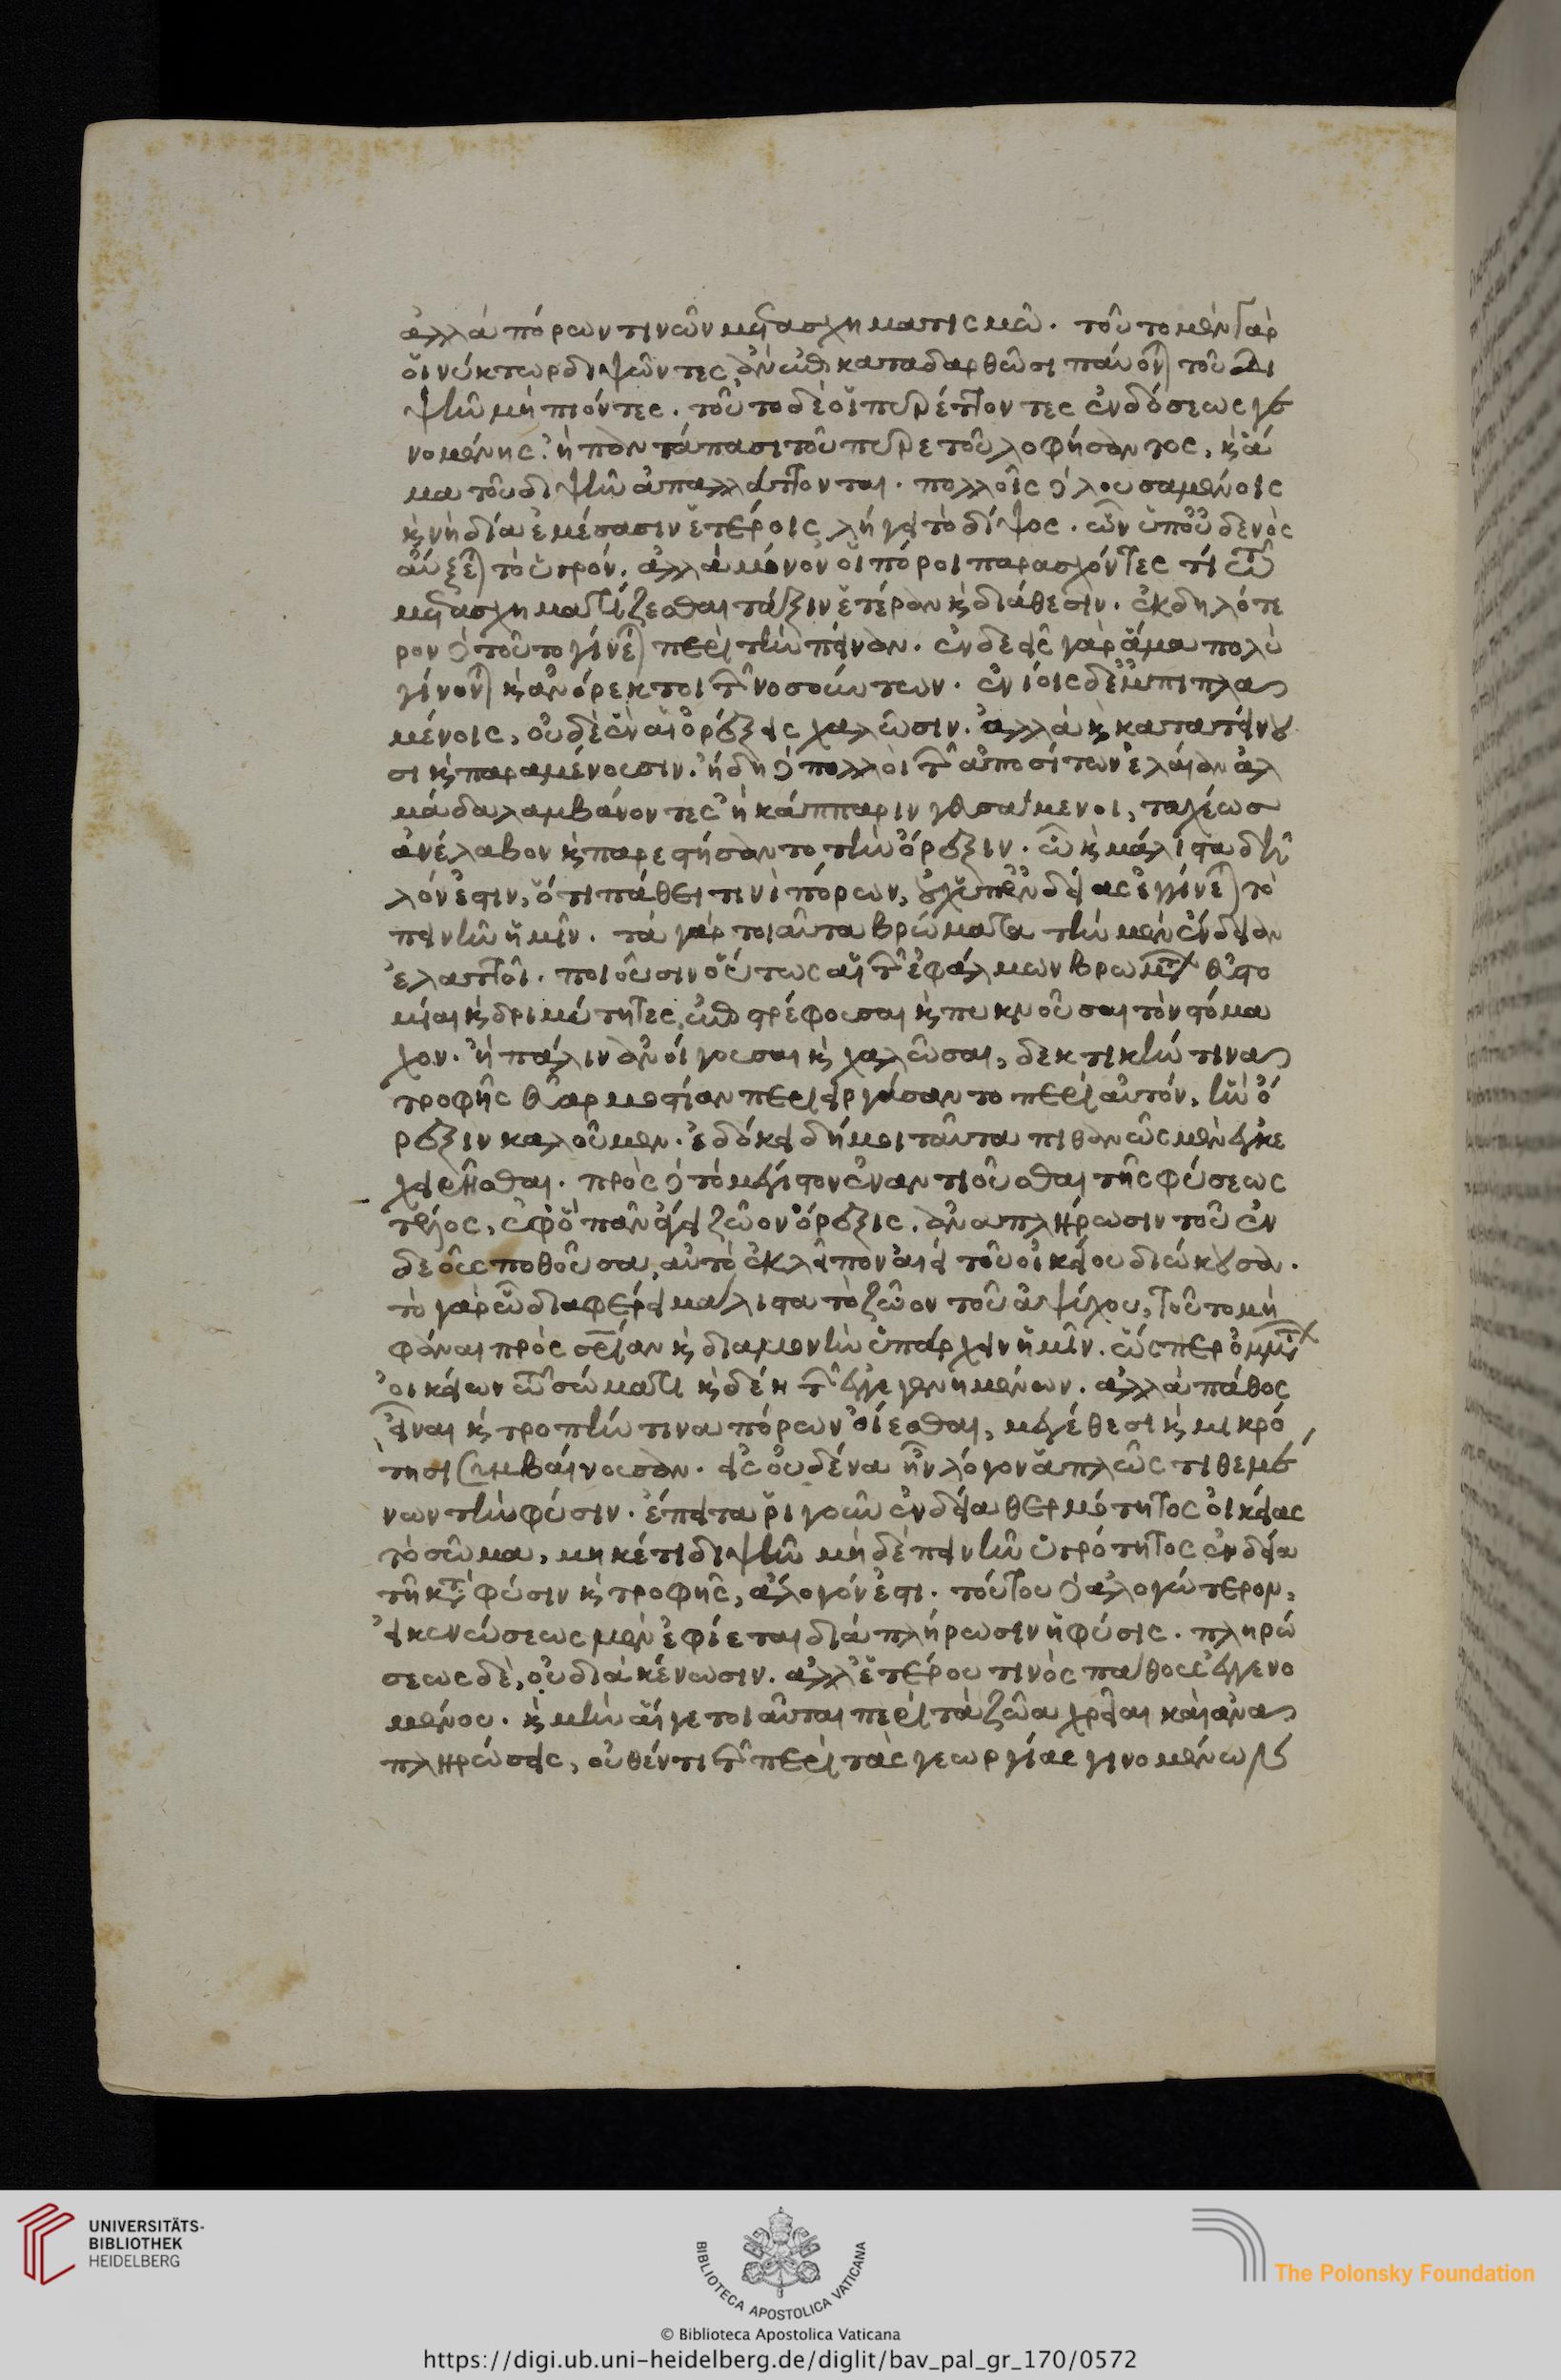 ἀλλὰ πόρων τινῶν μετασχηματισμῶ. τοῦτο μὲν γὰρ
οἱ νύκτωρ διψῶντες, ἂν ἐπικαταδαρθῶσι παύονται τοῦ δι
ψῆν μὴ πιόντες. τοῦτο δὲ οἱ πυρέττοντες ἐνδόσεως γε
νομένης. ἢ παντάπασι τοῦ πυρετοῦ λοφήσαντος, καὶ ἅ
μα τοῦ διψῆν ἀπαλλάττονται. πολλοῖς δὲ λουσαμένοις
καὶ νὴ δία ἐμέσασιν ἑτέροις λήγει τὸ δίψος. ὧν ὑπ' οὐδενὸς
αὔξεται τὸ ὑγρόν. ἀλλὰ μόνον οἱ πόροι παρασχόντες τί τῶ
μετασχηματίζεσθαι τάξιν ἑτέραν καὶ διάθεσιν. ἐκδηλότε
ρον δὲ τοῦτο γίνεται περὶ τὴν πεῖναν. ἐνδεεῖς γὰρ ἅμα πολὺ
γίνονται καὶ ἀνόρεκτοι τῶν νοσούντων. ἐνίοις δὲ ἐμπιπλα
μένοις, οὐδὲ ἓν αἱ ὀρέξεις χαλῶσιν. ἀλλὰ καὶ κατατείνου
σι καὶ παραμένουσιν. ἤδη δὲ πολλοὶ τῶν ἀποσίτων ἐλαίαν ἁλ
μάδα λαμβάνοντες ἢ κάππαριν γευσάμενοι, ταχέως
ἀνέλαβον καὶ παρεστήσαντο τὴν ὄρεξιν. ᾧ καὶ μάλιστα δῆ
λόν ἐστιν, ὅτι πάθει τινὶ πόρων, οὐχ ὑπ' ἐνδείας ἐγγίνεται τὸ
πεινῆν ἡμῖν. τὰ γὰρ τοιαῦτα βρώματα τὴν μὲν ἔνδειαν
ἐλαττοῖ. ποιοῦσιν οὕτως αἱ τῶν ἐφάλμων βρωμάτων εὐστο
μίαι καὶ δριμύτητες, ἐπιστρέφουσαι καὶ πυκνοῦσαι τὸν στόμα
χον. ἢ πάλιν ἀνοίγουσαι καὶ χαλῶσαι, δεκτικήν τινα
τροφῆς εὐαρμοστίαν περιειργάσαντο περὶ αὐτόν, ἣν ὄ
ρεξιν καλοῦμεν. ἐδόκει δή μοι ταῦτα πιθανῶς μὲν ἐγκε
χειρῆσθαι. πρὸς δὲ τὸ μέγιστον ἐναντιοῦσθαι τῆς φύσεως
τέλος, ἐφ' ὃ πᾶν ἄγει ζῶον ὄρεξις. ἀναπλήρωσιν τοῦ ἐν
δεοῦς ποθοῦσα, αὐτὸ ἐκλεῖπον ἀεὶ τοῦ οἰκείου διώκουσα.
τὸ γὰρ ᾧ διαφέρει μάλιστα τὸ ζῶον τοῦ ἀψύχου, τοῦτο μὴ
φάναι πρὸς σωτηρίαν καὶ διαμονὴν ὑπάρχειν ἡμῖν. ὥσπερ ὀμμάτων
οἰκείων τῶ σώματι καὶ δέη τῶν ἐγγεγενημένων. ἀλλὰ πάθος
εἶναι καὶ τροπήν τινα πόρων οἴεσθαι, μεγέθεσι καὶ μικρό
τησι συμβαίνουσαν. εἰς οὐδένα ἦν λόγον ἁπλῶς τιθεμέ
νων τὴν φύσιν. ἔπειτα ῥιγοῦν ἐνδεία θερμότητος οἰκείας
τὸ σῶμα, μηκέτι διψῆν μὴ δὲ πεινῆν ὑγρότητος ἐνδεία
τῆ κατὰ φύσιν καὶ τροφῆς, ἄλογόν ἐστι. τούτου δὲ ἀλογώτερον,
εἰ κενώσεως μὲν ἐφίεται διὰ πλήρωσιν ἡ φύσις. πληρώ
σεως δὲ, οὐ διὰ κένωσιν. ἀλλ' ἑτέρου τινὸς πάθους ἐγγενο
μένου. καὶ μὴν αἵ γε τοιαῦται περὶ τὰ ζῶα χρεῖαι καὶ ἀνα
πληρώσεις, οὐθέν τι τῶν περὶ τὰς γεωργίας γινομένων
UNIVERSITÄTS-
BIBLIOTHEK
HEIDELBERG
BIBLIOTECA APOSTOLICA VATICANA
The Polonsky Foundation
© Biblioteca Apostolica Vaticana
https://digi.ub.uni-heidelberg.de/diglit/bav_pal_gr_170/0572